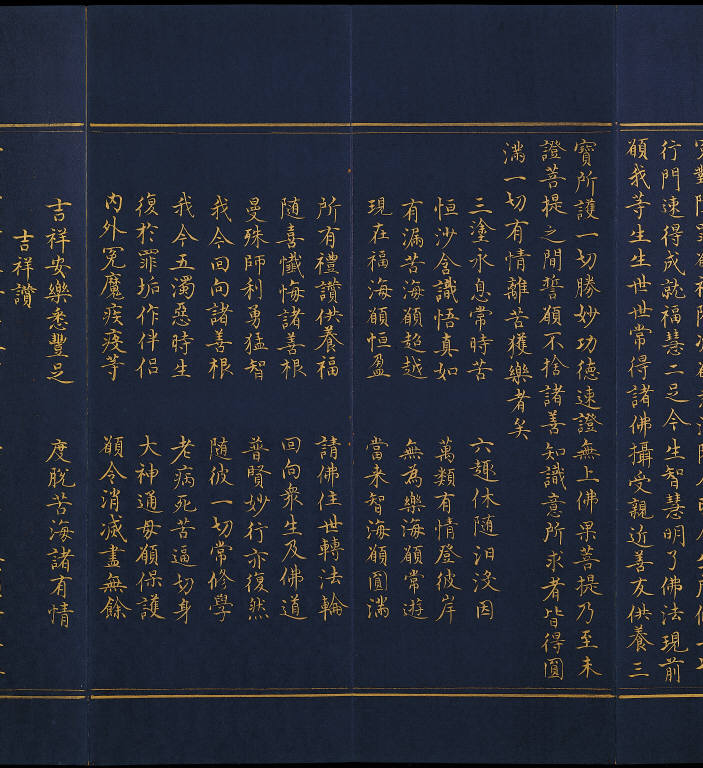 行門速得成就福慧二足今生智慧明了佛法現前
願我等生生世世常得諸佛攝受親近善友供養三
寶所護一切勝妙功德速證無上佛果菩提乃至未
證菩提之間誓願不捨諸善知識意所求者皆得圓
滿一切有情離苦獲樂者矣
三塗永息常時苦 六趣休隨汨沒因
恒沙含識悟真如 萬類有情登彼岸
有漏苦海願超越 無為樂海願常遊
現在福海願恒盈 當来智海願圓滿
所有禮讚供養福 請佛住世轉法輪
随喜懺悔諸善根 回向衆生及佛道
曼殊師利勇猛智 普賢妙行亦復然
我今回向諸善根 隨彼一切常修學
我今五濁惡時生 老病死苦逼切身
復於罪垢作伴侣 大神通母願保護
内外冤魔疾疫等 願令消滅盡無餘
吉祥安樂悉豐足 度脫苦海諸有情
吉祥讚